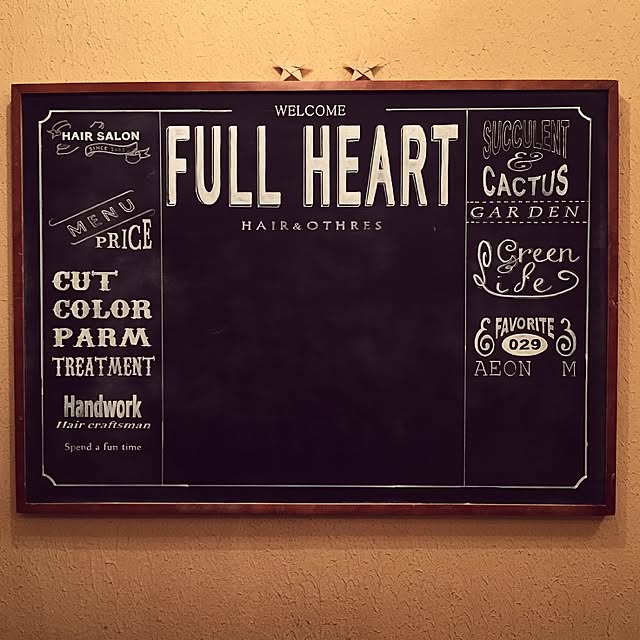 WELCOME
FULL HEART
HAIR&OTHRES
HAIR SALON
MENU
PRICE
CUT
COLOR
PARM
TREATMENT
Handwork
Hair craftsman
Spend a fun time
SUCCULENT
&
CACTUS
GARDEN
Green
&
Life
FAVORITE
029
AEON M